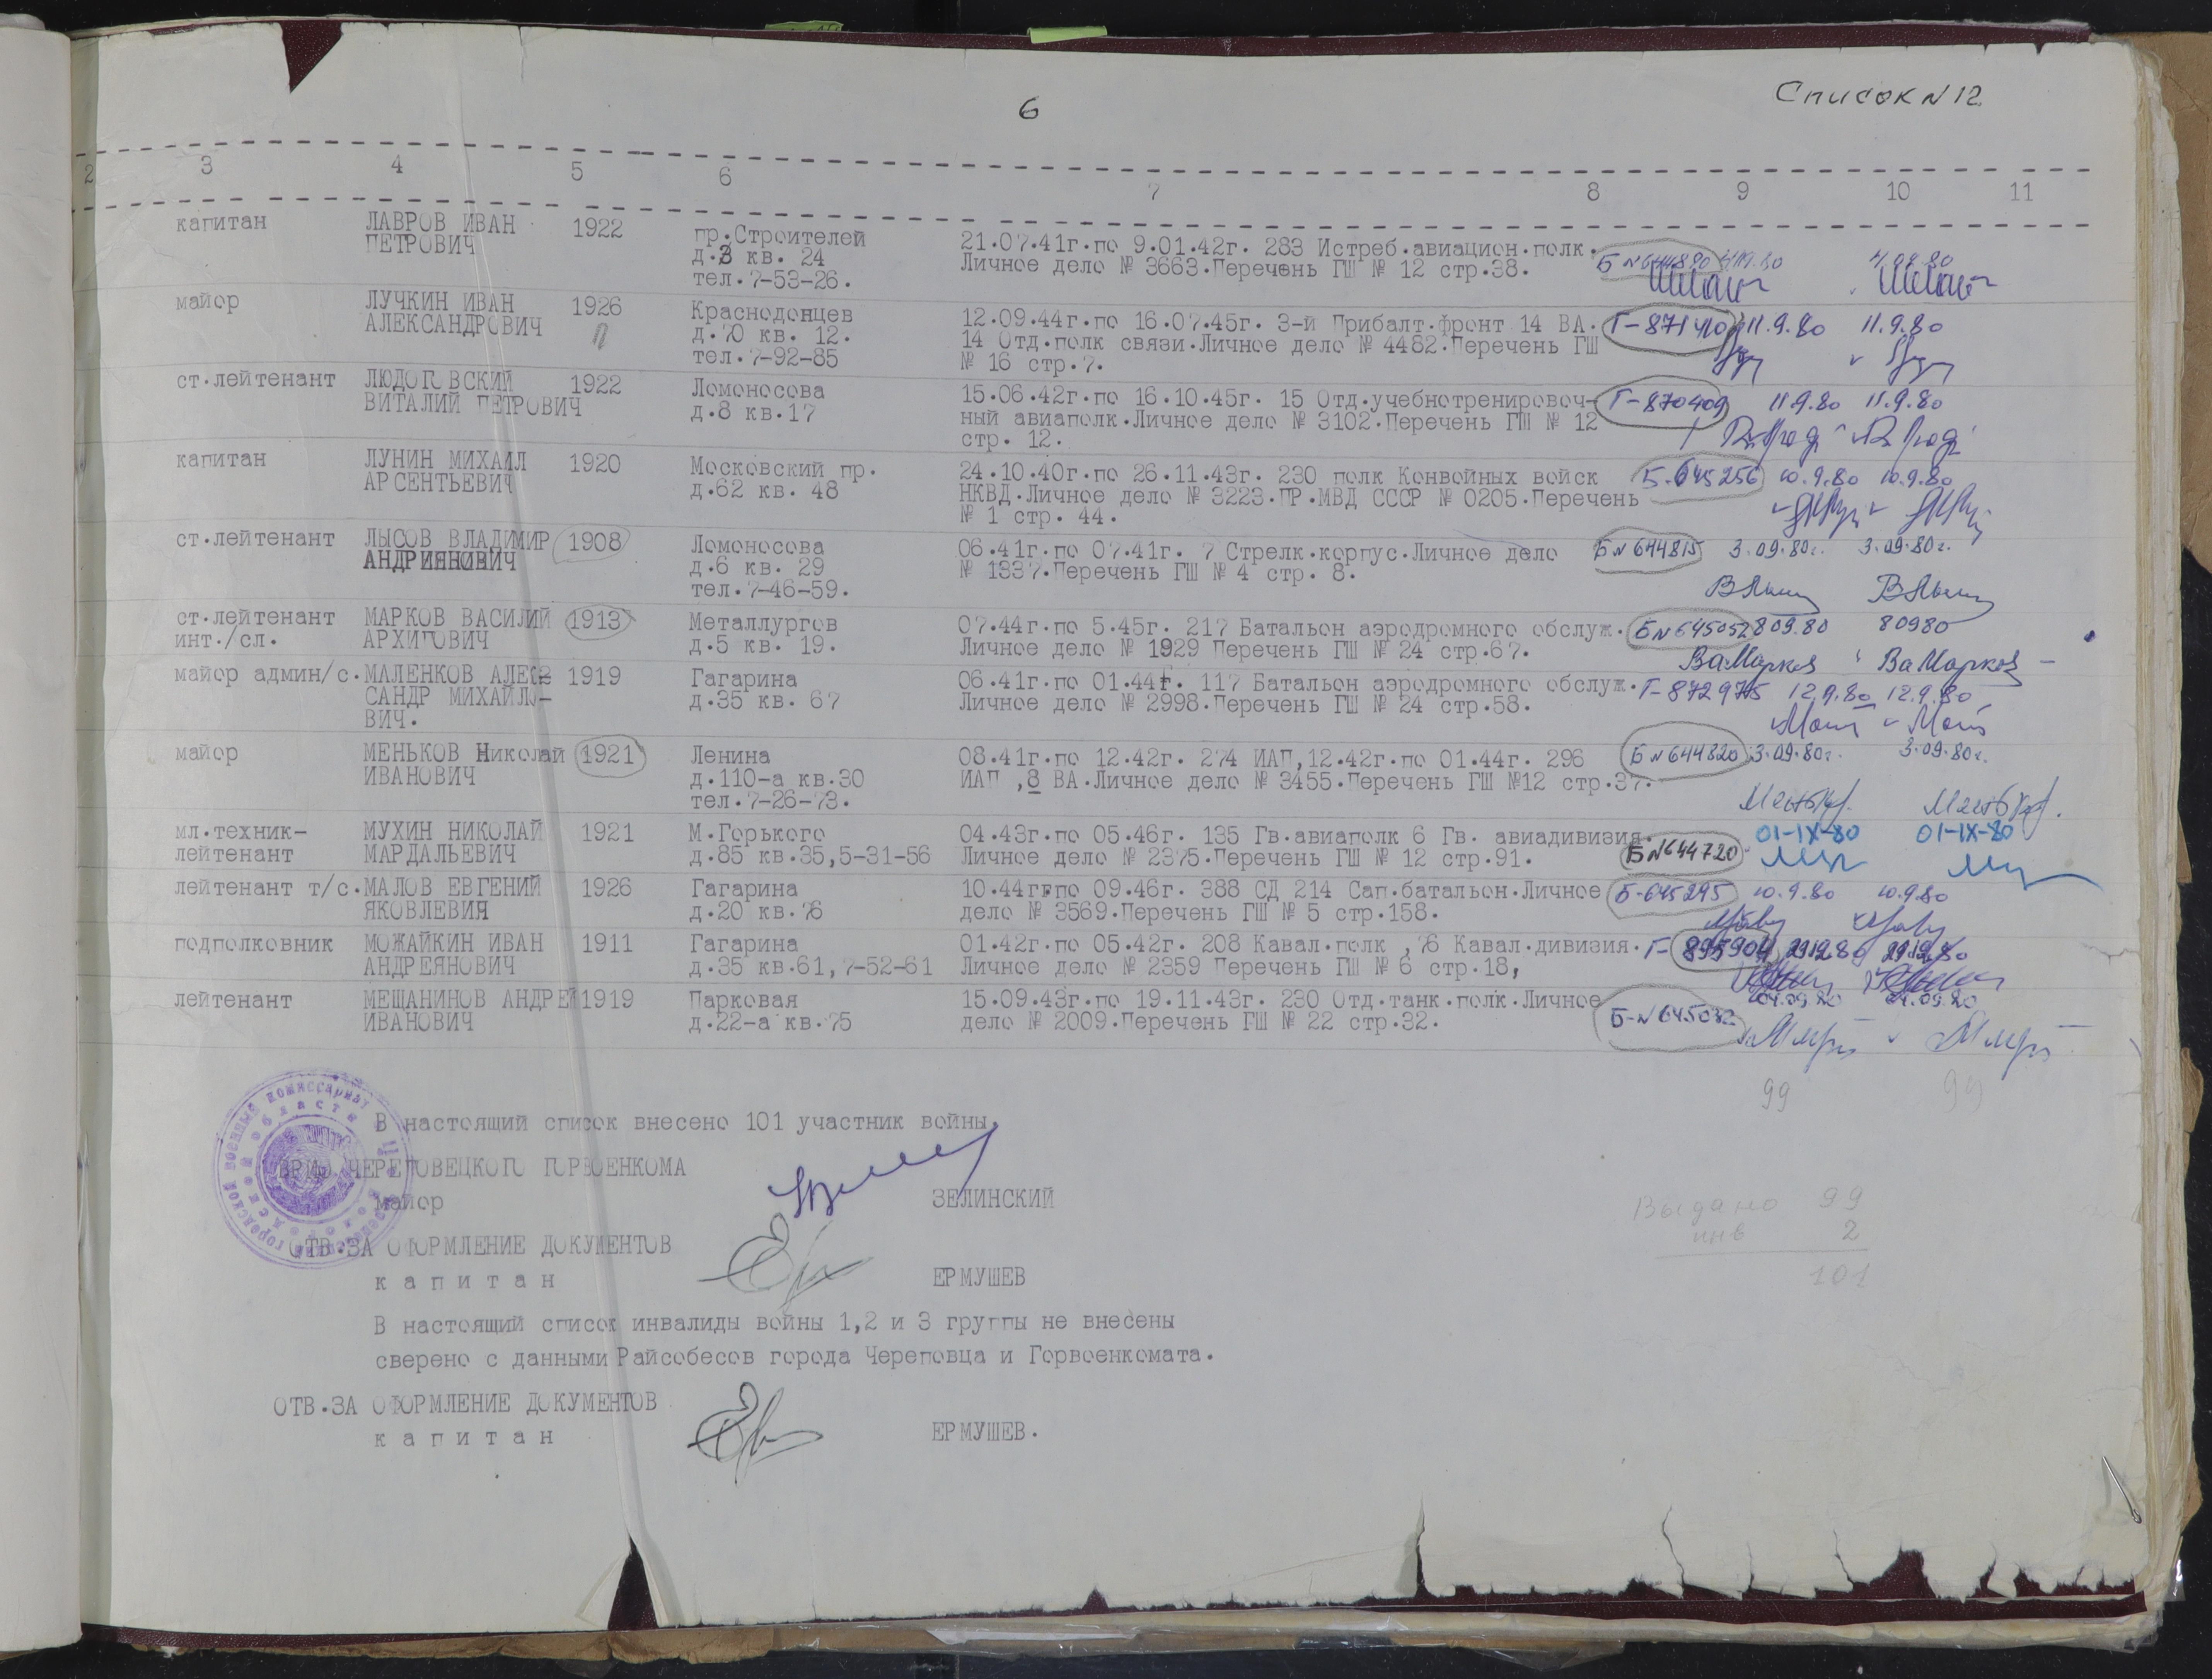 6
Список N 12
2 3 4 5 6 7 8 9 10 11
капитан ЛАВРОВ ИВАН 1922 пр.Строителей 21.07.41г.по 9.01.42г. 283 Истреб.авиацион.полк.
ПЕТРОВИЧ д.3 кв. 24 Личное дело № 3663.Перечень ГШ № 12 стр.38.
тел.7-53-26.
майор ЛУЧКИН ИВАН 1926 Краснодонцев 12.09.44г.по 16.07.45г. 3-й Прибалт.фронт 14 ВА. Г-871410 11.9.80 11.9.80
АЛЕКСАНДРОВИЧ д.70 кв. 12. 14 Отд.полк связи.Личное дело № 4482.Перечень ГШ
тел.7-92-85 № 16 стр.7.
ст.лейтенант ЛЮДОГОВСКИЙ 1922 Ломоносова 15.06.42г.по 16.10.45г. 15 Отд.учебнотренировоч- Г-870409 11.9.80 11.9.80
ВИТАЛИЙ ПЕТРОВИЧ д.8 кв.17 ный авиаполк.Личное дело № 3102.Перечень ГШ № 12
стр. 12.
капитан ЛУНИН МИХАИЛ 1920 Московский пр. 24.10.40г.по 26.11.43г. 230 полк Конвойных войск Б-645256 10.9.80 10.9.80
АРСЕНТЬЕВИЧ д.62 кв. 48 НКВД.Личное дело № 3223.ПР.МВД СССР № 0205.Перечень
№ 1 стр. 44.
ст.лейтенант ЛЫСОВ ВЛАДИМИР 1908 Ломоносова 06.41г.по 07.41г. 7 Стрелк.корпус.Личное дело Б N 644815 3.09.80г. 3.09.80г.
АНДРИЯНОВИЧ д.6 кв. 29 № 1337.Перечень ГШ № 4 стр. 8.
тел.7-46-59.
ст.лейтенант МАРКОВ ВАСИЛИЙ 1913 Металлургов 07.44г.по 5.45г. 217 Батальон аэродромного обслуж. Б N 645052 8 09.80 8 09 80
инт./сл. АРХИПОВИЧ д.5 кв. 19. Личное дело № 1929 Перечень ГШ № 24 стр.67.
ВаМарков ВаМарков
майор админ/с. МАЛЕНКОВ АЛЕК- 1919 Гагарина 06.41г.по 01.44г. 117 Батальон аэродромного обслуж. Г-872975 12.9.80 12.9.80
САНДР МИХАЙЛО- д.35 кв. 67 Личное дело № 2998.Перечень ГШ № 24 стр.58.
ВИЧ.
майор МЕНЬКОВ Николай 1921 Ленина 08.41г.по 12.42г. 274 ИАП,12.42г.по 01.44г. 296 Б N 644820 3.09.80г. 3.09.80г.
ИВАНОВИЧ д.110-а кв.30 ИАП ,8 ВА.Личное дело № 3455.Перечень ГШ №12 стр.37.
тел.7-26-73.
мл.техник- МУХИН НИКОЛАЙ 1921 М.Горького 04.43г.по 05.46г. 135 Гв.авиаполк 6 Гв. авиадивизия. Б N 644720 01-IX-80 01-IX-80
лейтенант МАРДАЛЬЕВИЧ д.85 кв.35,5-31-56 Личное дело № 2375.Перечень ГШ № 12 стр.91.
лейтенант т/с. МАЛОВ ЕВГЕНИЙ 1926 Гагарина 10.44г.по 09.46г. 388 СД 214 Сап.батальон.Личное Б-645295 10.9.80 10.9.80
ЯКОВЛЕВИЯ д.20 кв.76 дело № 3569.Перечень ГШ № 5 стр.158.
подполковник МОЖАЙКИН ИВАН 1911 Гагарина 01.42г.по 05.42г. 208 Кавал.полк ,76 Кавал.дивизия. Г-895904
АНДРЕЯНОВИЧ д.35 кв.61,7-52-61 Личное дело № 2359 Перечень ГШ № 6 стр.18,
лейтенант МЕЩАНИНОВ АНДРЕЙ 1919 Парковая 15.09.43г.по 19.11.43г. 230 Отд.танк.полк.Личное 04.09.80 04.09.80
ИВАНОВИЧ д.22-а кв.75 дело № 2009.Перечень ГШ № 22 стр.32. Б-N 645032
99 99
В настоящий список внесено 101 участник войны.
ВРИО ЧЕРЕПОВЕЦКОГО ГОРВОЕНКОМА
майор ЗЕЛИНСКИЙ
Выдано 99
инв 2
101
ОТВ.ЗА ОФОРМЛЕНИЕ ДОКУМЕНТОВ
капитан ЕРМУШЕВ
В настоящий список инвалиды войны 1,2 и 3 группы не внесены
сверено с данными Райсобесов города Череповца и Горвоенкомата.
ОТВ.ЗА ОФОРМЛЕНИЕ ДОКУМЕНТОВ
капитан ЕРМУШЕВ.